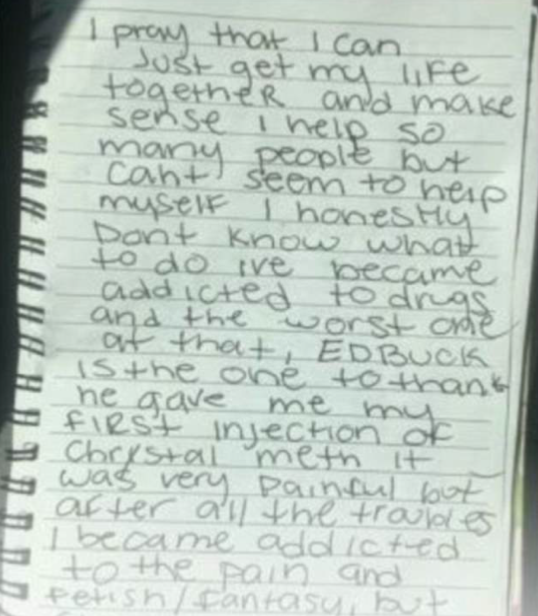 I pray that I can
Just get my life
together and make
sense I help so
many people but
cant seem to help
myself I honestly
Dont know what
to do ive became
addicted to drugs
and the worst one
at that, ED BUCK
is the one to thank
he gave me my
first injection of
chrystal meth it
was very painful but
after all the troubles
I became addicted
to the pain and
fetish/fantasy, but